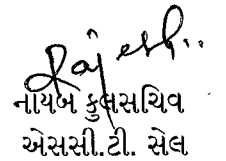 Rajesh..
નાયબ કુલસચિવ
એસસી.ટી. સેલ